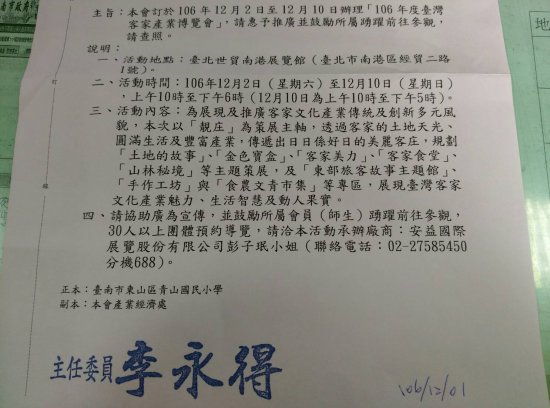 主旨：本會訂於106年12月2日至12月10日辦理「106年度臺灣
客家產業博覽會」，請惠予推廣並鼓勵所屬踴躍前往參觀，
請查照。
說明：
一、活動地點：臺北世貿南港展覽館（臺北市南港區經貿二路
1號）。
二、活動時間：106年12月2日（星期六）至12月10日（星期日）
，上午10時至下午6時（12月10日為上午10時至下午5時）。
三、活動內容：為展現及推廣客家文化產業傳統及創新多元風
貌，本次以「靚庄」為策展主軸，透過客家的土地天光、
圓滿生活及豐富產業，傳遞出日日係好日的美麗客庄，規劃
「土地的故事」、「金色寶盒」、「客家美力」、「客家食堂」、
「山林秘境」等主題策展，及「東部旅客故事主題館」、
「手作工坊」與「食農文青市集」等專區，展現臺灣客家
文化產業魅力、生活智慧及動人果實。
四、請協助廣為宣傳，並鼓勵所屬會員（師生）踴躍前往參觀，
30人以上團體預約導覽，請洽本活動承辦廠商：安益國際
展覽股份有限公司彭子珉小姐（聯絡電話：02-27585450
分機688）。
正本：臺南市東山區青山國民小學
副本：本會產業經濟處
主任委員 李永得
106/12/01
訂
線
地